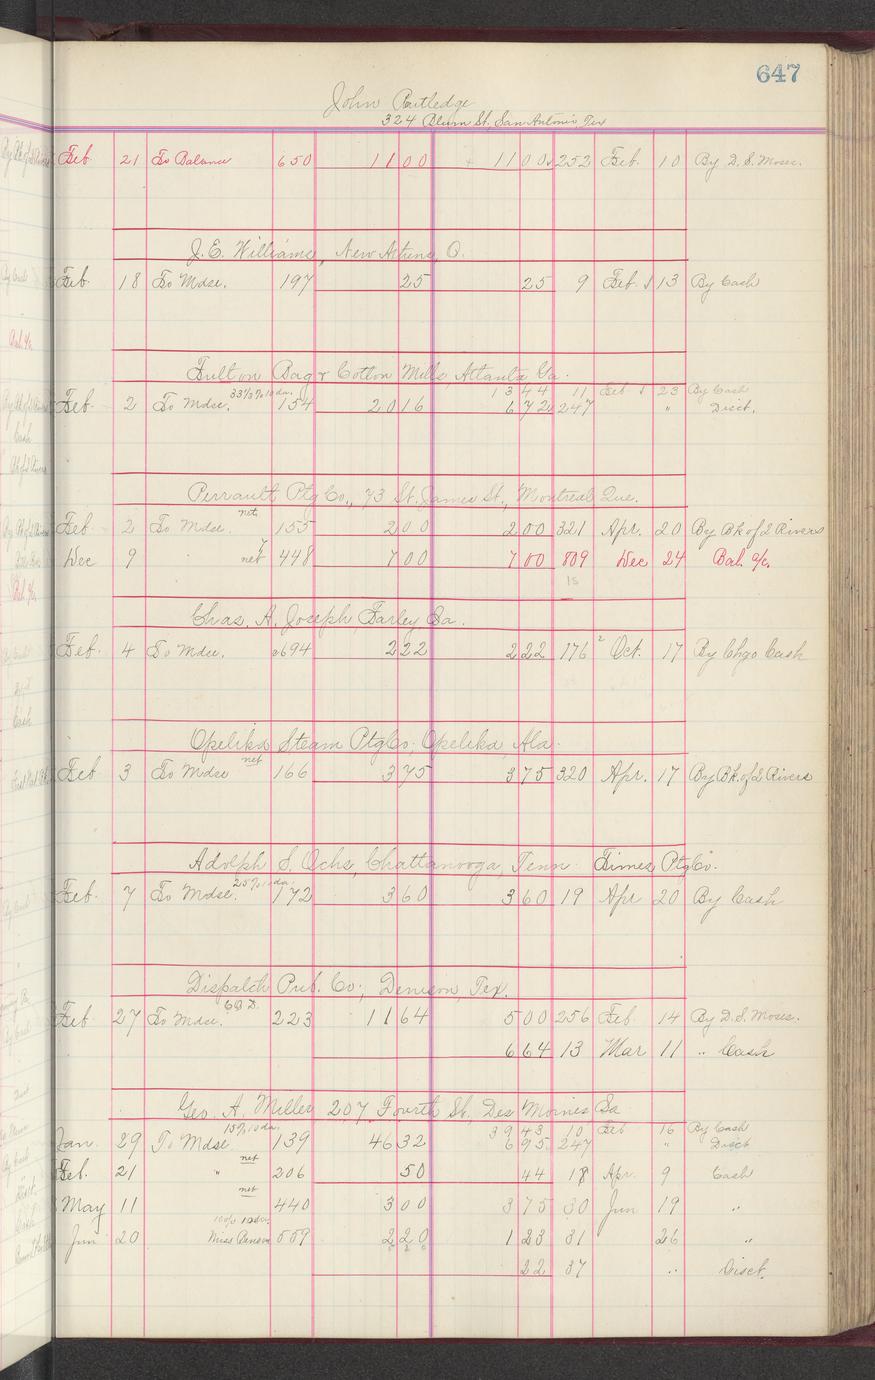 647
John Rutledge
324 Blum St. San Antonio Tex
Feb. 21 To Balance 650 1100 1100 252 Feb. 10 By D. S. Moses.
J. E. Williams, New Athens, O.
Feb. 18 To Mdse. 197 25 25 9 Feb. 13 By Cash
Fulton Bag & Cotton Mills Atlanta Ga.
33 1/3 % 10 da. 1344 11 Feb 23 By Cash
Feb. 2 To Mdse. 154 2016 672 247 " Disct.
Perrault Ptg Co., 73 St. James St., Montreal Que.
net
Feb 2 To Mdse. 155 200 200 321 Apr. 20 By Bk of 2 Rivers
Dec 9 " net 448 700 700 809 Dec 24 Bal. a/c.
15
Chas. A. Joseph, Farley Ia.
Feb. 4 To Mdse. 694 222 222 176 2 Oct. 17 By Chgo Cash
Opelika Steam Ptg Co; Opelika, Ala.
net
Feb 3 To Mdse 166 375 375 320 Apr. 17 By Bk. of 2 Rivers
Adolph S. Ochs, Chattanooga, Tenn. Times Ptg Co.
25% 10 da.
Feb. 7 To Mdse. 172 360 360 19 Apr 20 By Cash
Dispatch Pub. Co., Denison, Tex.
C.O.D.
Feb. 27 To Mdse. 223 1164 500 256 Feb 14 By D. S. Moses.
664 13 Mar 11 " Cash
Geo. A. Miller 207 Fourth St., Des Moines Ia
15% 10 da. 3943 10 Feb 16 By Cash
Jan. 29 To Mdse. 139 4632 695 247 " Disct
net
Feb. 21 " 206 50 44 18 Apr. 9 Cash
net
May 11 440 300 375 30 Jun 19 "
10% 10 da.
Jun 20 559 220 123 31 26 "
22 37 " Disct.